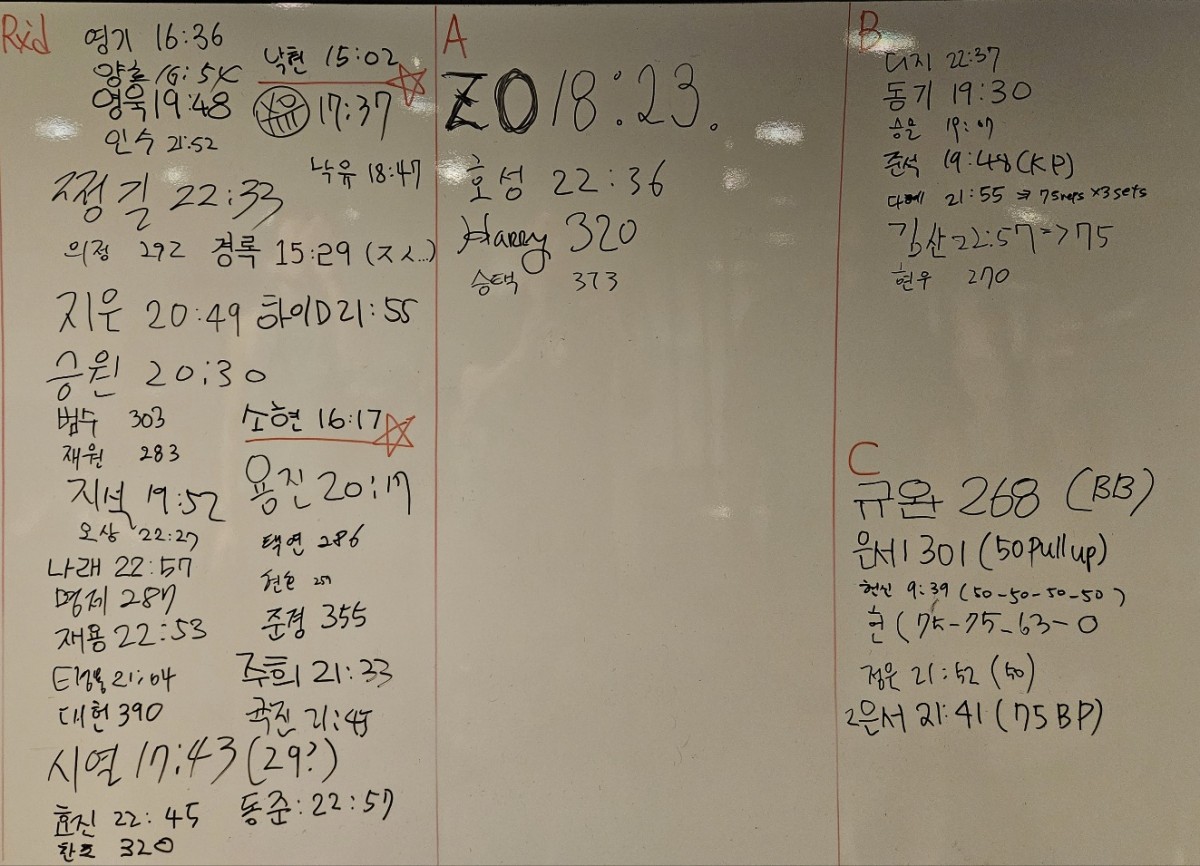 Rx'd
영기 16:36
양호 16:54
낙현 15:02
영욱 19:48
17:37
인수 21:52
낙유 18:47
쩡길 22:33
의정 292
경록 15:29 (ㅈㅅ...)
지은 20:49
하이D 21:55
승원 20:30
범수 303
소현 16:17
재원 283
지석 19:52
용진 20:17
오상 22:27
택연 286
나래 22:57
명제 287
준경 355
재용 22:53
주희 21:33
21:04
대헌 390
국진 21:45
시열 17:43 (29?)
효진 22:45
동준: 22:57
찬호 320
A
ZO 18:23.
호성 22:36
Harry 320
승택 373
B
디지 22:37
동기 19:30
승율 19:07
준석 19:48 (KP)
다혜 21:55 ⇒ 75reps ×3sets
김산 22:57=>75
현우 270
C
규완 268 (BB)
은서1 301 (50 Pull up)
현신 9:39 (50-50-50-50)
현 (75-75-63-0
정은 21:52 (50)
2은서 21:41 (75 BP)